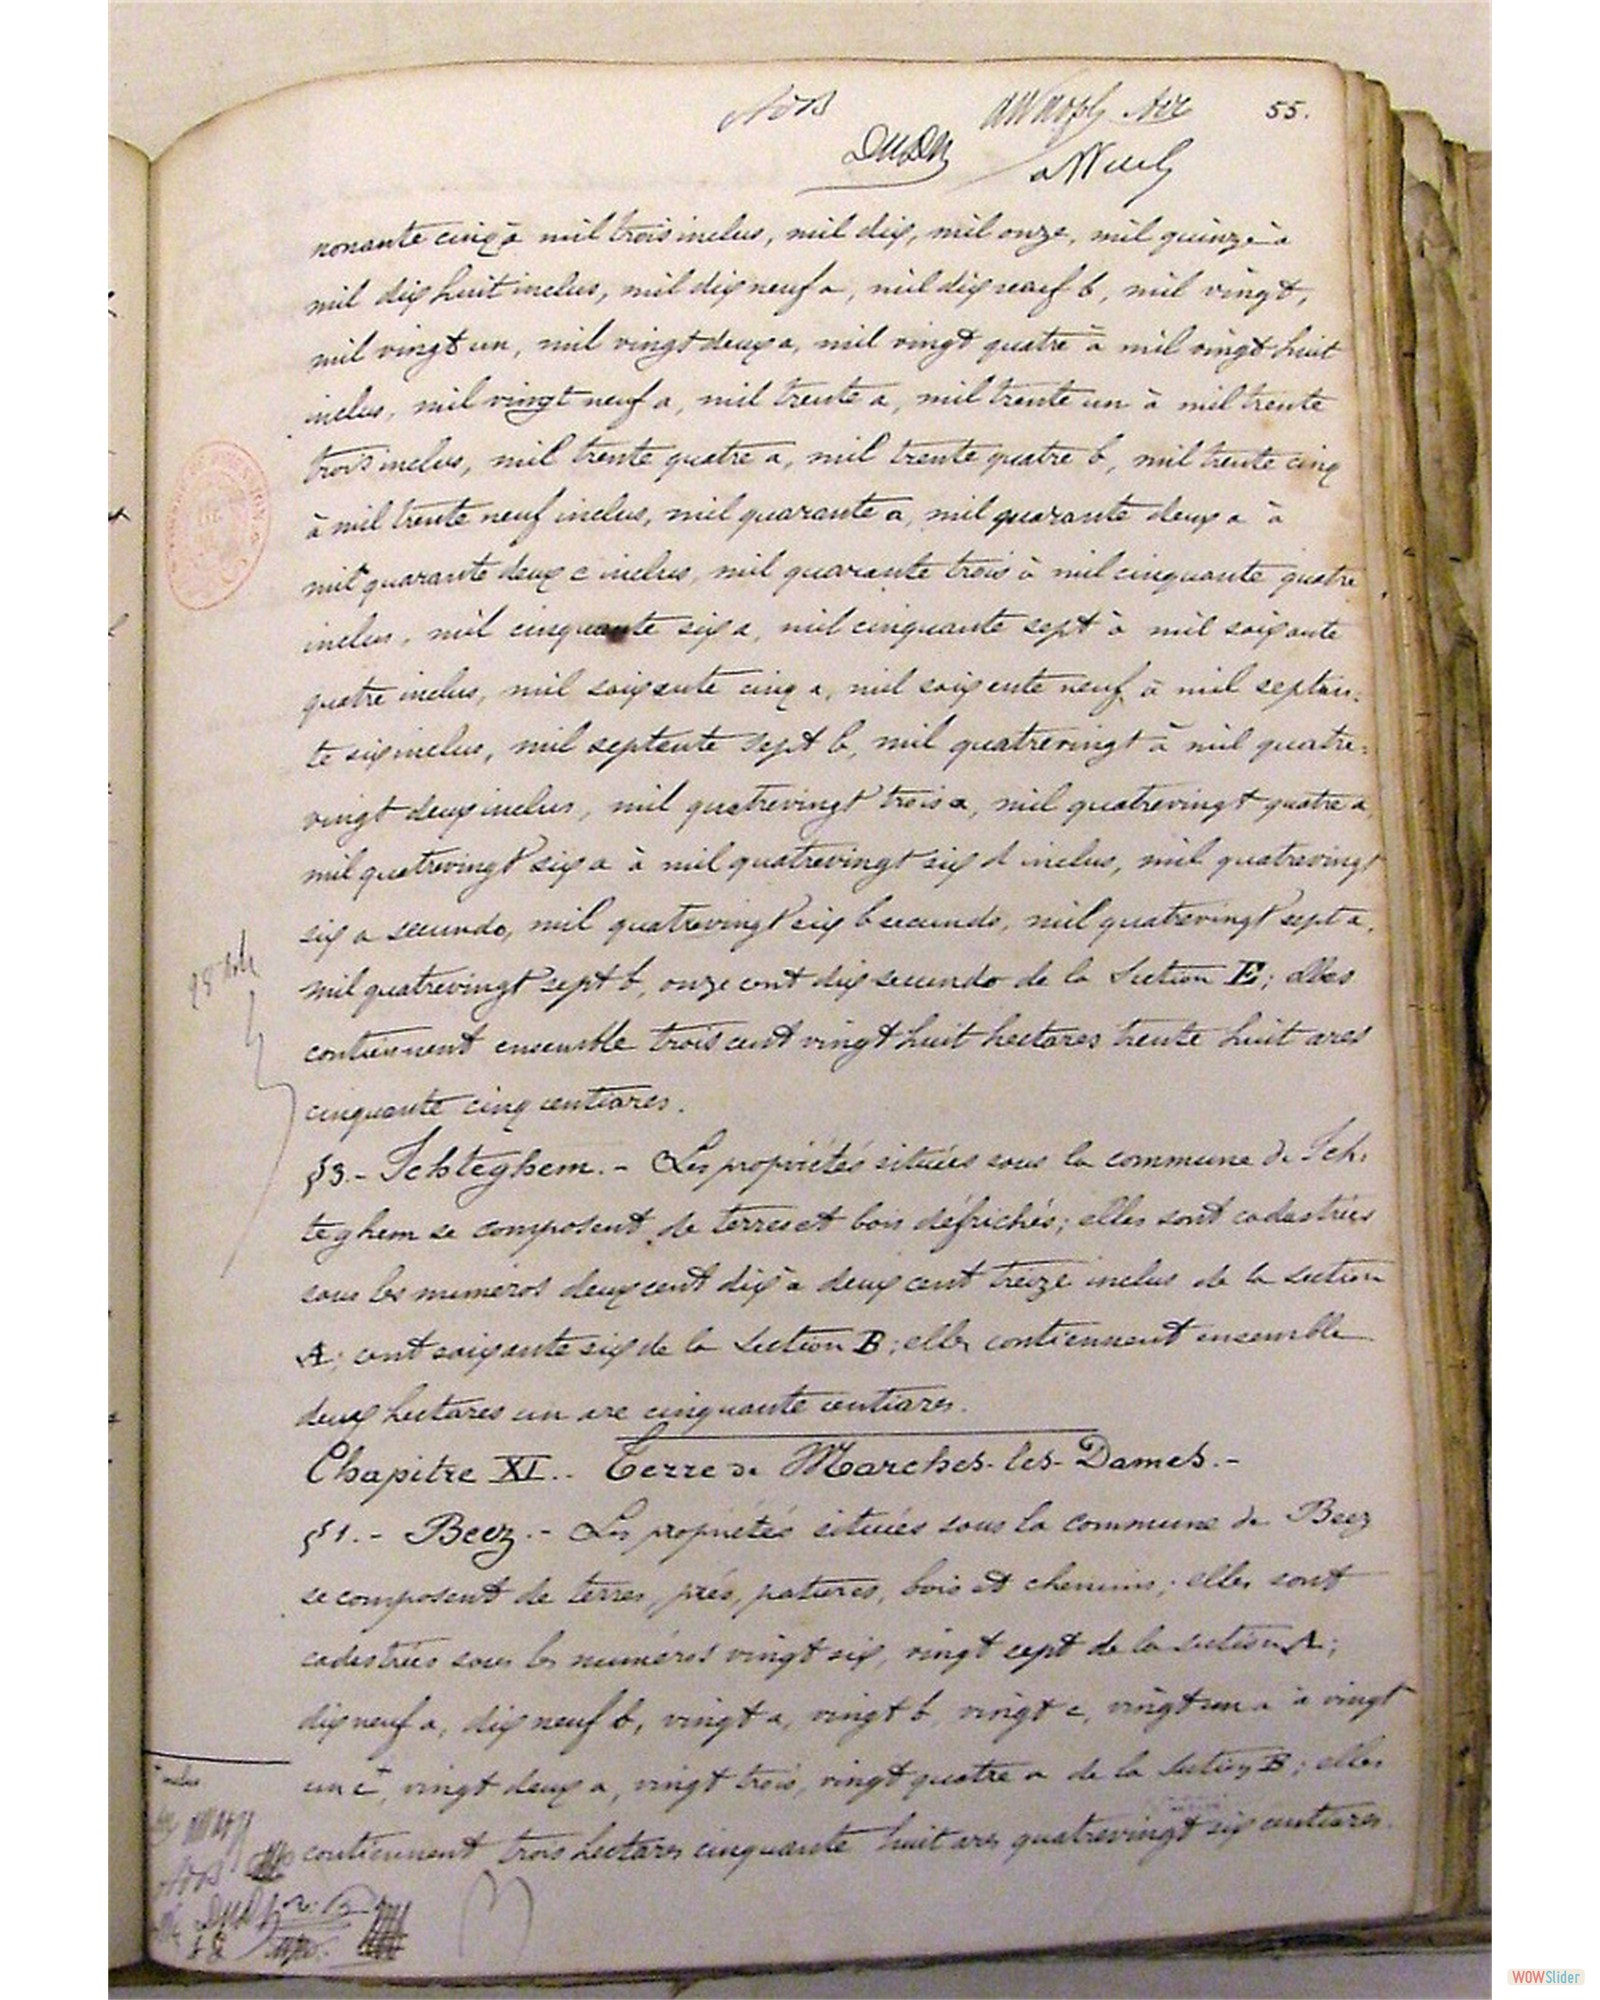 55.
nonante cinq à mil trois inclus, mil dix, mil onze, mil quinze à
mil dix huit inclus, mil dix neuf a, mil dix neuf b, mil vingt,
mil vingt un, mil vingt deux a, mil vingt quatre à mil vingt huit
inclus, mil vingt neuf a, mil trente a, mil trente un à mil trente
trois inclus, mil trente quatre a, mil trente quatre b, mil trente cinq
à mil trente neuf inclus, mil quarante a, mil quarante deux a à
mil quarante deux c inclus, mil quarante trois à mil cinquante quatre
inclus, mil cinquante six a, mil cinquante sept à mil soixante
quatre inclus, mil soixante cinq a, mil soixante neuf à mil septan-
te six inclus, mil septante sept b, mil quatrevingt à mil quatre-
vingt deux inclus, mil quatrevingt trois a, mil quatrevingt quatre a,
mil quatrevingt six a à mil quatrevingt six d inclus, mil quatrevingt
six a secundo, mil quatrevingt six b secundo, mil quatrevingt sept a,
mil quatrevingt sept b, onze cent dix secundo de la Section E; elles
contiennent ensemble trois cent vingt huit hectares trente huit ares
cinquante cinq centiares.
§3.- Ichteghem.- Les propriétés situées sous la commune de Ich-
teghem se composent de terres et bois défrichés; elles sont cadastrées
sous les numéros deux cent dix à deux cent treize inclus de la section
A; cent soixante six de la Section B; elles contiennent ensemble
deux hectares un are cinquante centiares.
Chapitre XI.- Terre de Marches-les-Dames.-
§1.- Beez.- Les propriétés situées sous la commune de Beez
se composent de terres, prés, patures, bois et chemins; elles sont
cadastrées sous les numéros vingt six, vingt sept de la section A;
dix neuf a, dix neuf b, vingt a, vingt b, vingt c, vingt un a à vingt
un c, vingt deux a, vingt trois, vingt quatre a de la Section B; elles
contiennent trois hectares cinquante huit ares quatrevingt six centiares.
inclus
WOWSlider